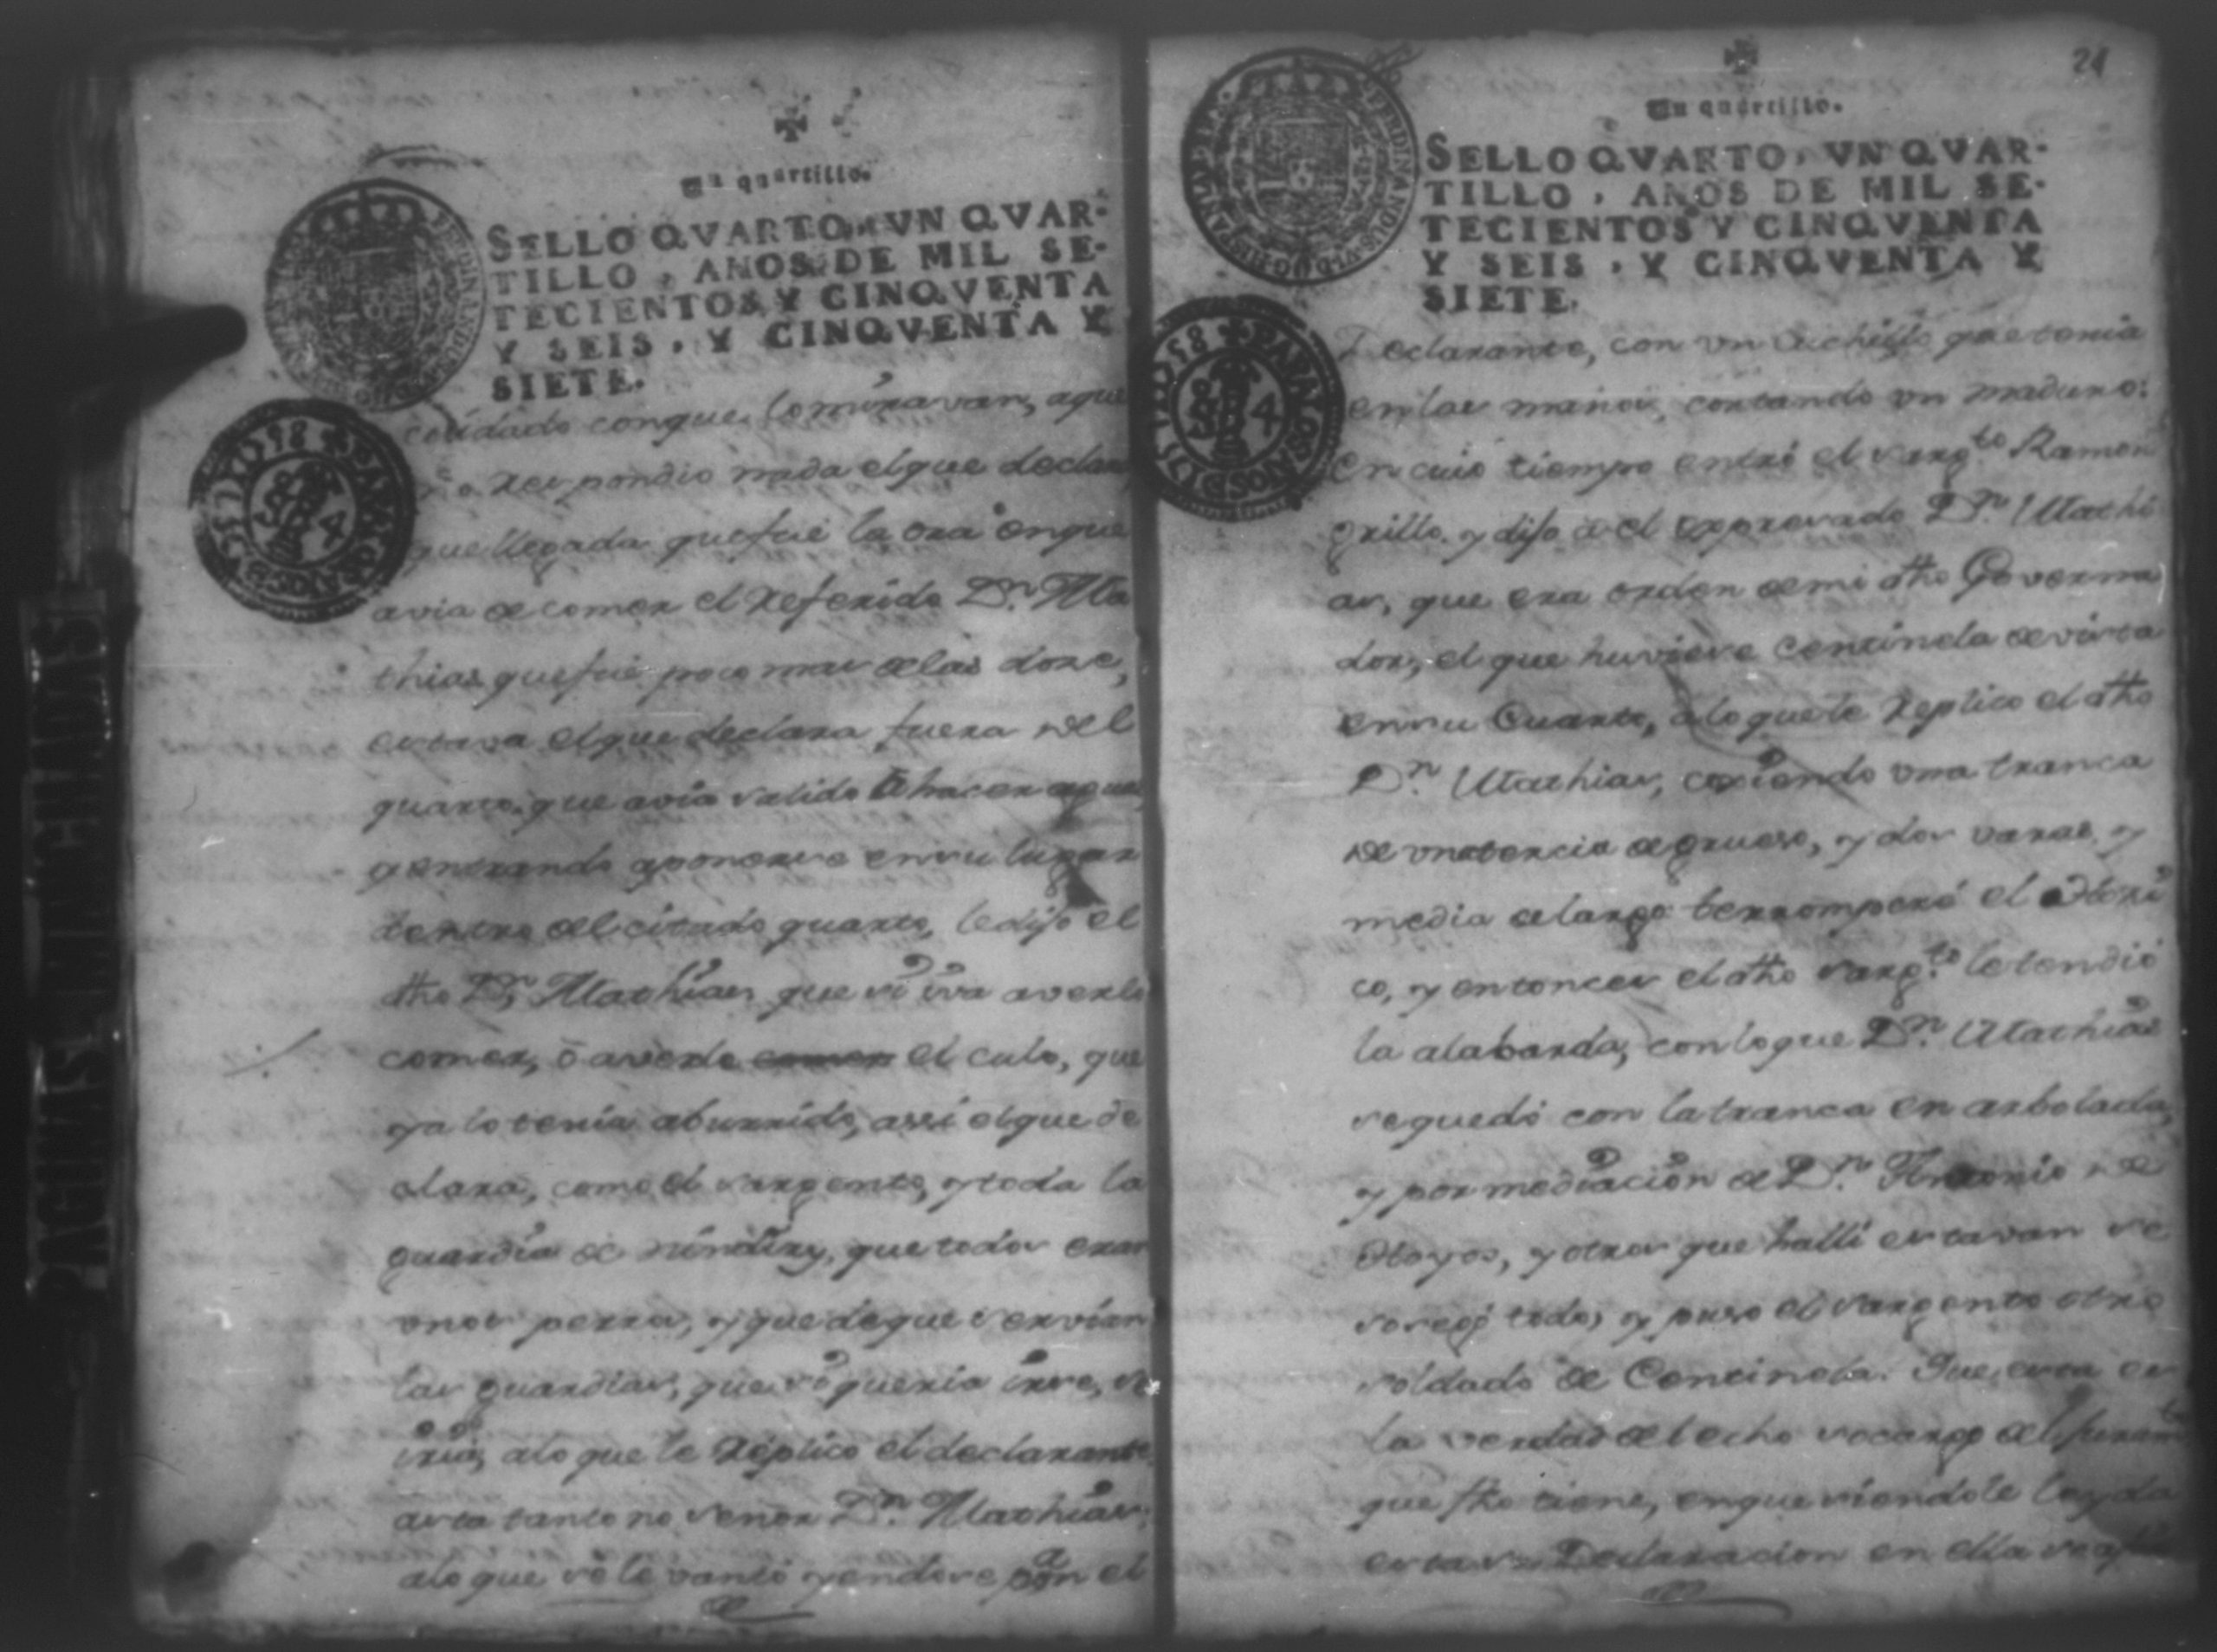 Un quartillo.
SELLO QVARTO, VN QVAR-
TILLO, AÑOS DE MIL SE-
TECIENTOS Y CINQVENTA
Y SEIS, Y CINQVENTA Y
SIETE.
cuidado conque lo miravan, aque
respondio nada el que declara
que llegada que fue la ora en que
avia de comer el referido Dn. Ma
thias que fue poco mas de las doze,
estava el que declara fuera del
quarto, que avia salido a hacer agua
y entrando a ponerse en su lugar
dentro del citado quarto, le dijo el
dho Dn. Mathias, que si iva a verlo
comer, ò a verle comer el culo, que
ya lo tenia aburrido, assi el que de
clara, como el sargento, y toda la
guardia de
unos perros, y que de que servian
las guardias, que si queria irse, se
iria, a lo que le replico el declarante
asta tanto no señor Dn. Mathias,
a lo que se le vantó yendose para el
21
Un quartillo.
SELLO QVARTO, VN QVAR-
TILLO, AÑOS DE MIL SE-
TECIENTOS Y CINQVENTA
Y SEIS, Y CINQVENTA Y
SIETE.
Declarante, con un cuchillo que tenia
en las manos, cortando un maduro:
en cuio tiempo entró el sargto. Ramon
grillo, y dijo a el expresado Dn. Mathi
as, que era orden de mi dho Governa
dor, el que huviese centinela de vista
en su Cuarto, a lo que le replico el dho
Dn. Mathias, coxiendo una tranca
de una tercia de grueso, y dos varas, y
media de largo
co, y entonces el dho sargto. le tendió
la alabarda, con lo que Dn. Mathias
se quedó con la tranca en arbolada,
y por mediacion de Dn. Antonio de
Hoyos, y otros que halli estavan se
sosegó todo, y puso el sargento otro
soldado de Centinela. Que esta es
la verdad del echo so cargo del juramto
que fho tiene, en que siendole leyda
esta su Declaracion en ella se